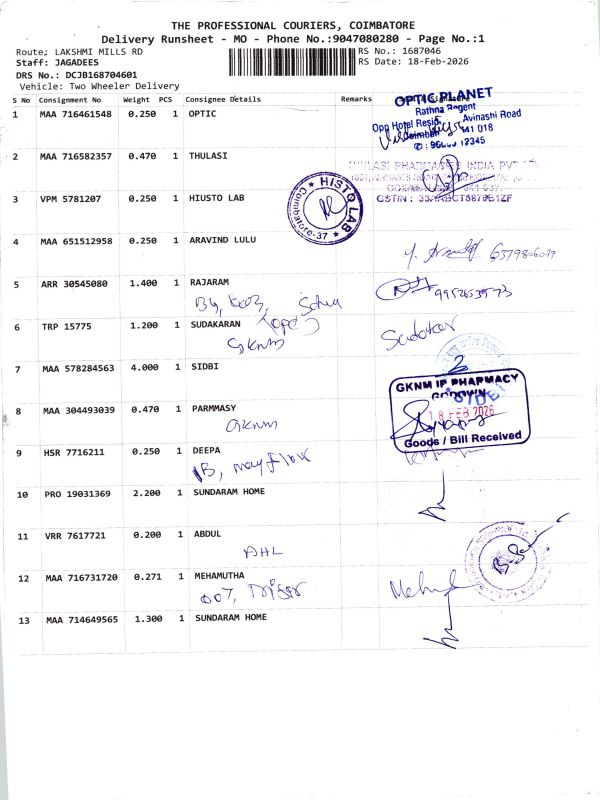 THE PROFESSIONAL COURIERS, COIMBATORE
Delivery Runsheet - MO - Phone No.:9047080280 - Page No.:1
Route; LAKSHMI MILLS RD
RS No.: 1687046
Staff: JAGADEES
RS Date: 18-Feb-2026
DRS No.: DCJB168704601
Vehicle: Two Wheeler Delivery
S No Consignment No Weight PCS Consignee Details Remarks
1 MAA 716461548 0.250 1 OPTIC
OPTIC PLANET
Rathna Regent
Opp Hotel Resid. Avinashi Road
2 MAA 716582357 0.470 1 THULASI
THULASI PHARMACIES INDIA PVT
GSTIN :
3 VPM 5781207 0.250 1 HIUSTO LAB
HISTO LAB
Coimbatore-37
4 MAA 651512958 0.250 1 ARAVIND LULU
6379806079
5 ARR 30545080 1.400 1 RAJARAM
9952653573
6 TRP 15775 1.200 1 SUDAKARAN
GKNM
Sudakar
7 MAA 578284563 4.000 1 SIDBI
GKNM IP PHARMACY
GODOWN
18 FEB 2026
Goods / Bill Received
8 MAA 304493039 0.470 1 PARMMASY
GKNM
9 HSR 7716211 0.250 1 DEEPA
1B, mayflower
10 PRO 19031369 2.200 1 SUNDARAM HOME
11 VRR 7617721 0.200 1 ABDUL
AHL
12 MAA 716731720 0.271 1 MEHAMUTHA
007,
13 MAA 714649565 1.300 1 SUNDARAM HOME